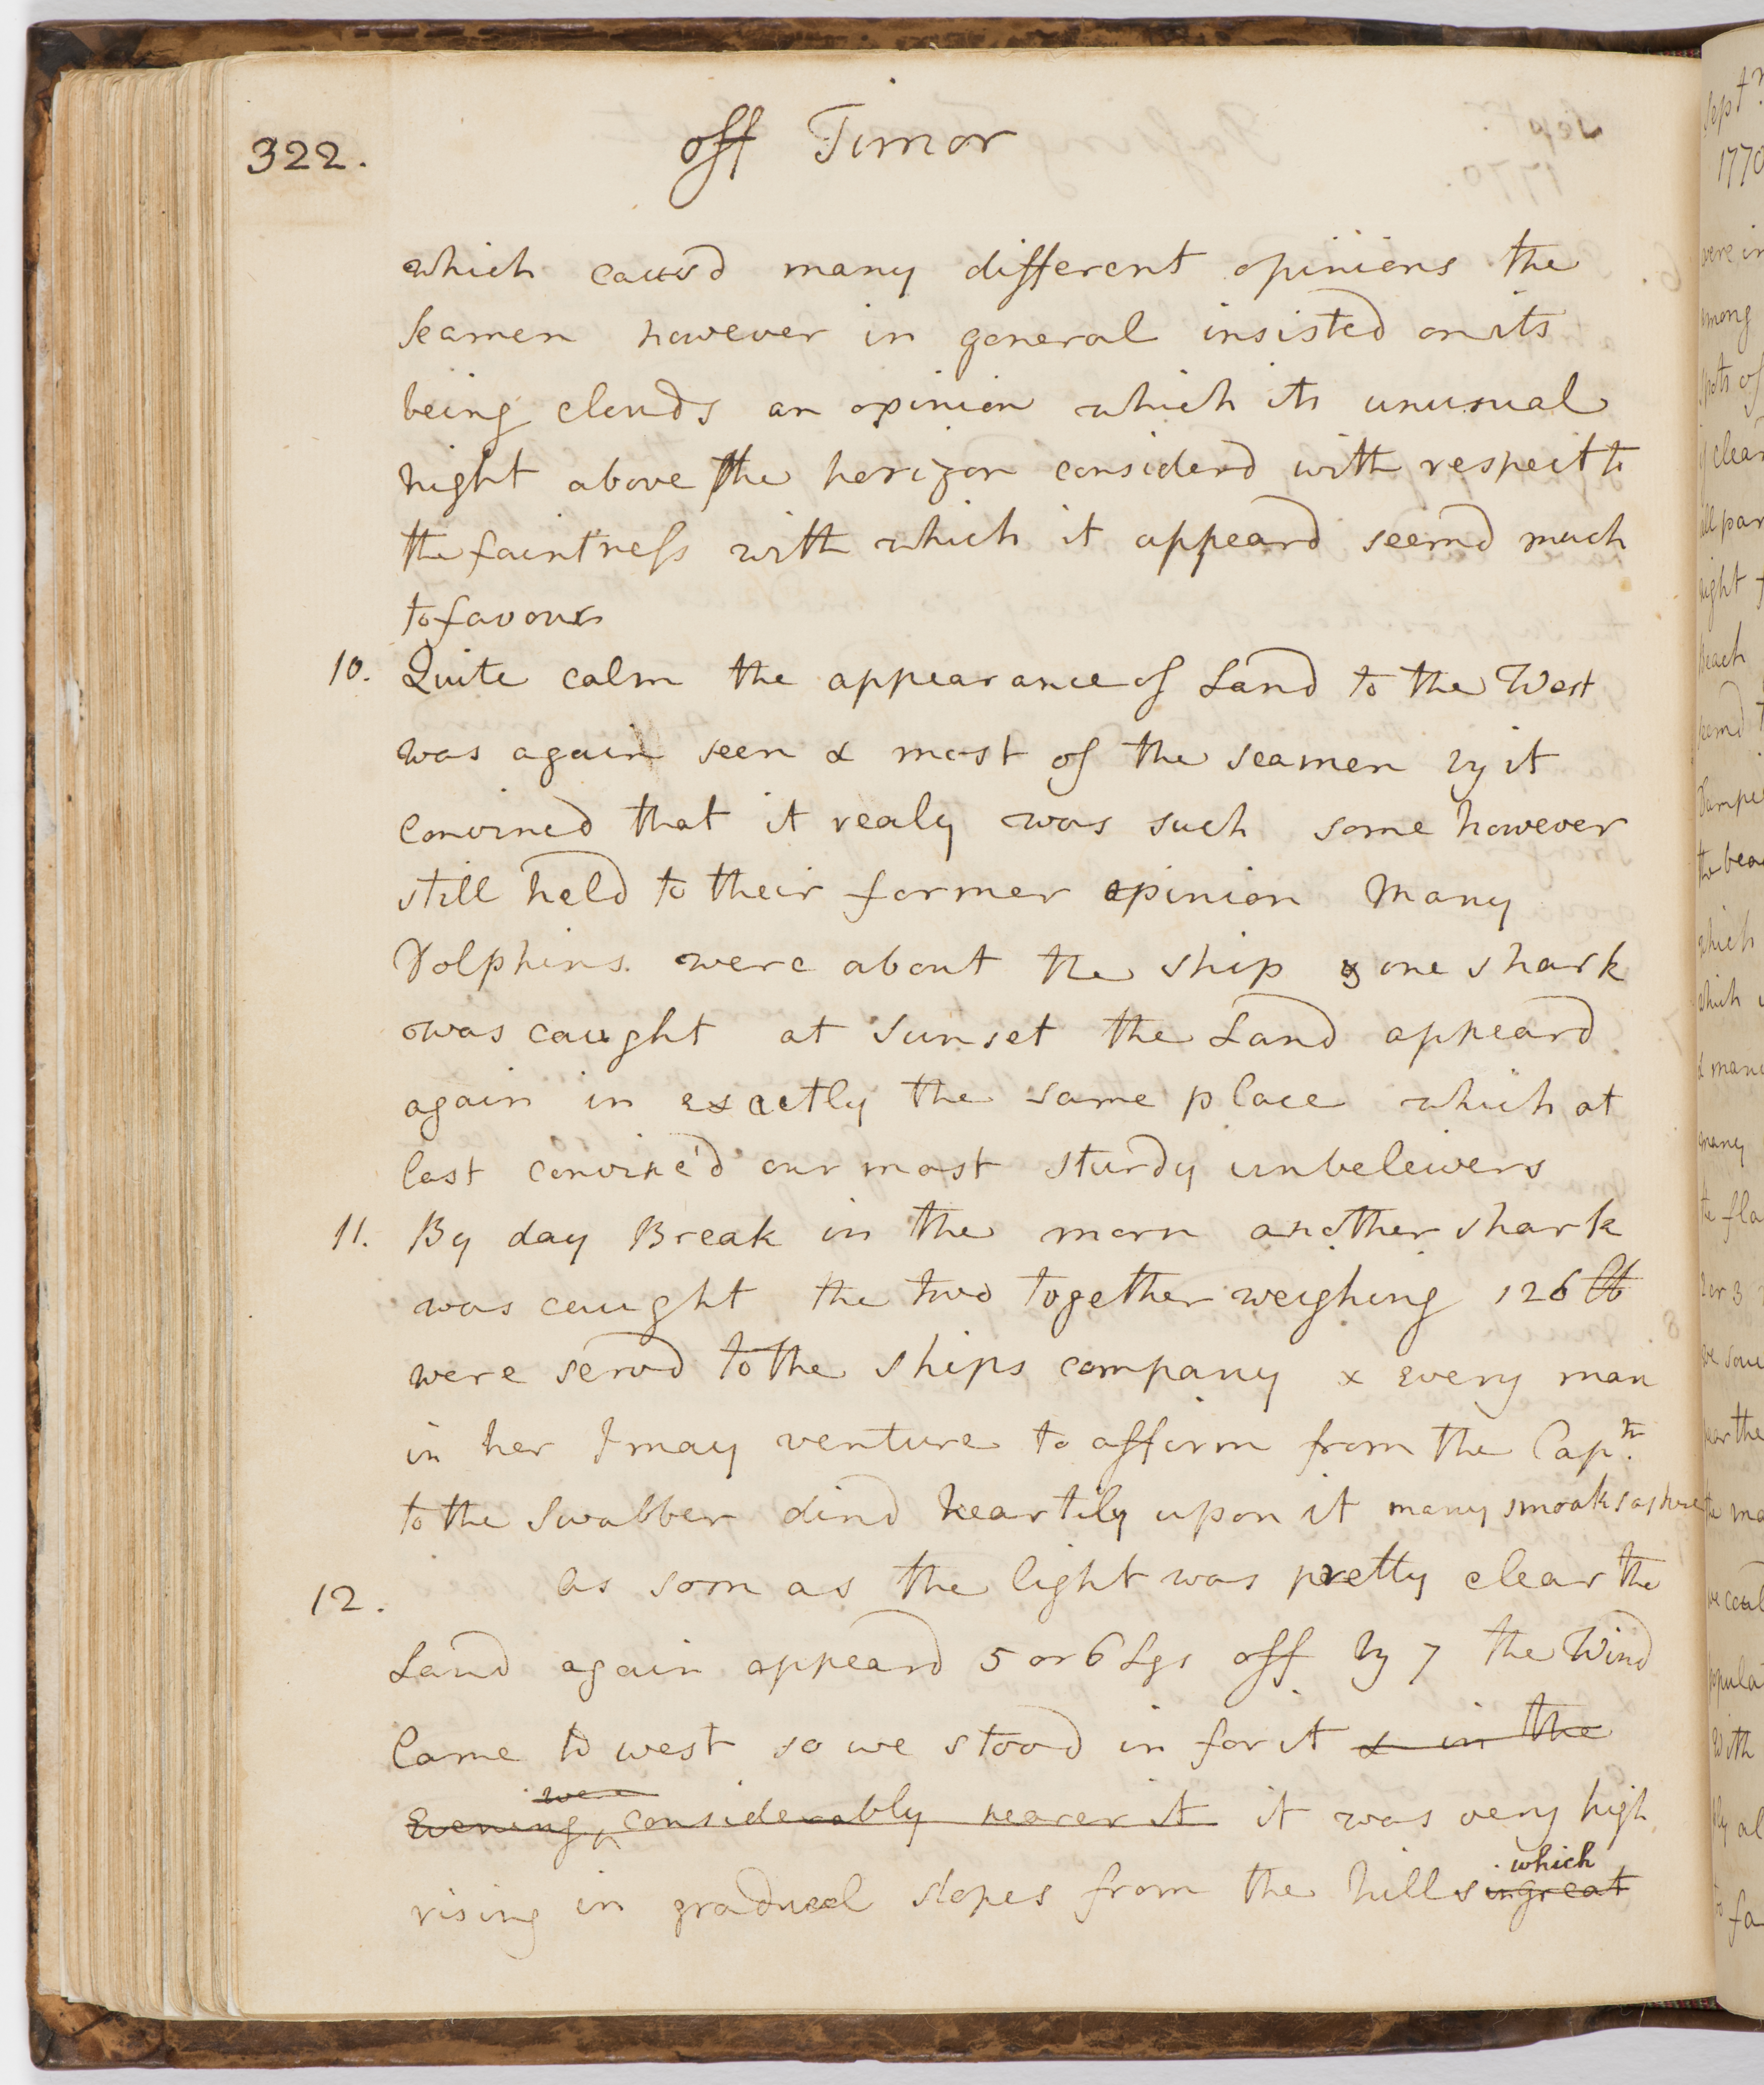 322.
off Timor
which causd many different opinions the
Seamen however in general insisted on its
being clouds an opinion which its unusual
hight above the horizon considerd with respect to
the faintness with which it appeard seemd much
to favour
10. Quite calm the appearance of Land to the West
was again seen & most of the seamen by it
convincd that it realy was such some however
still held to their former opinion Many
Dolphins were about the ship & one shark
was caught at sunset the Land appeard
again in exactly the same place which at
last convinc'd our most sturdy unbeleivers
11. By day Break in the morn another shark
was caught the two together weighing 126 lb
were servd to the ships company & every man
in her I may venture to affirm from the Capn.
to the Swabber dind heartily upon it many smoaks ashore
12. as soon as the light was pretty clear the
Land again appeard 5 or 6 Lgs off by 7 the Wind
Came to west so we stood in for it & in the
were
Evening considerably nearer it it was very high
which
rising in gradual slopes from the hills in great
Sept
1770